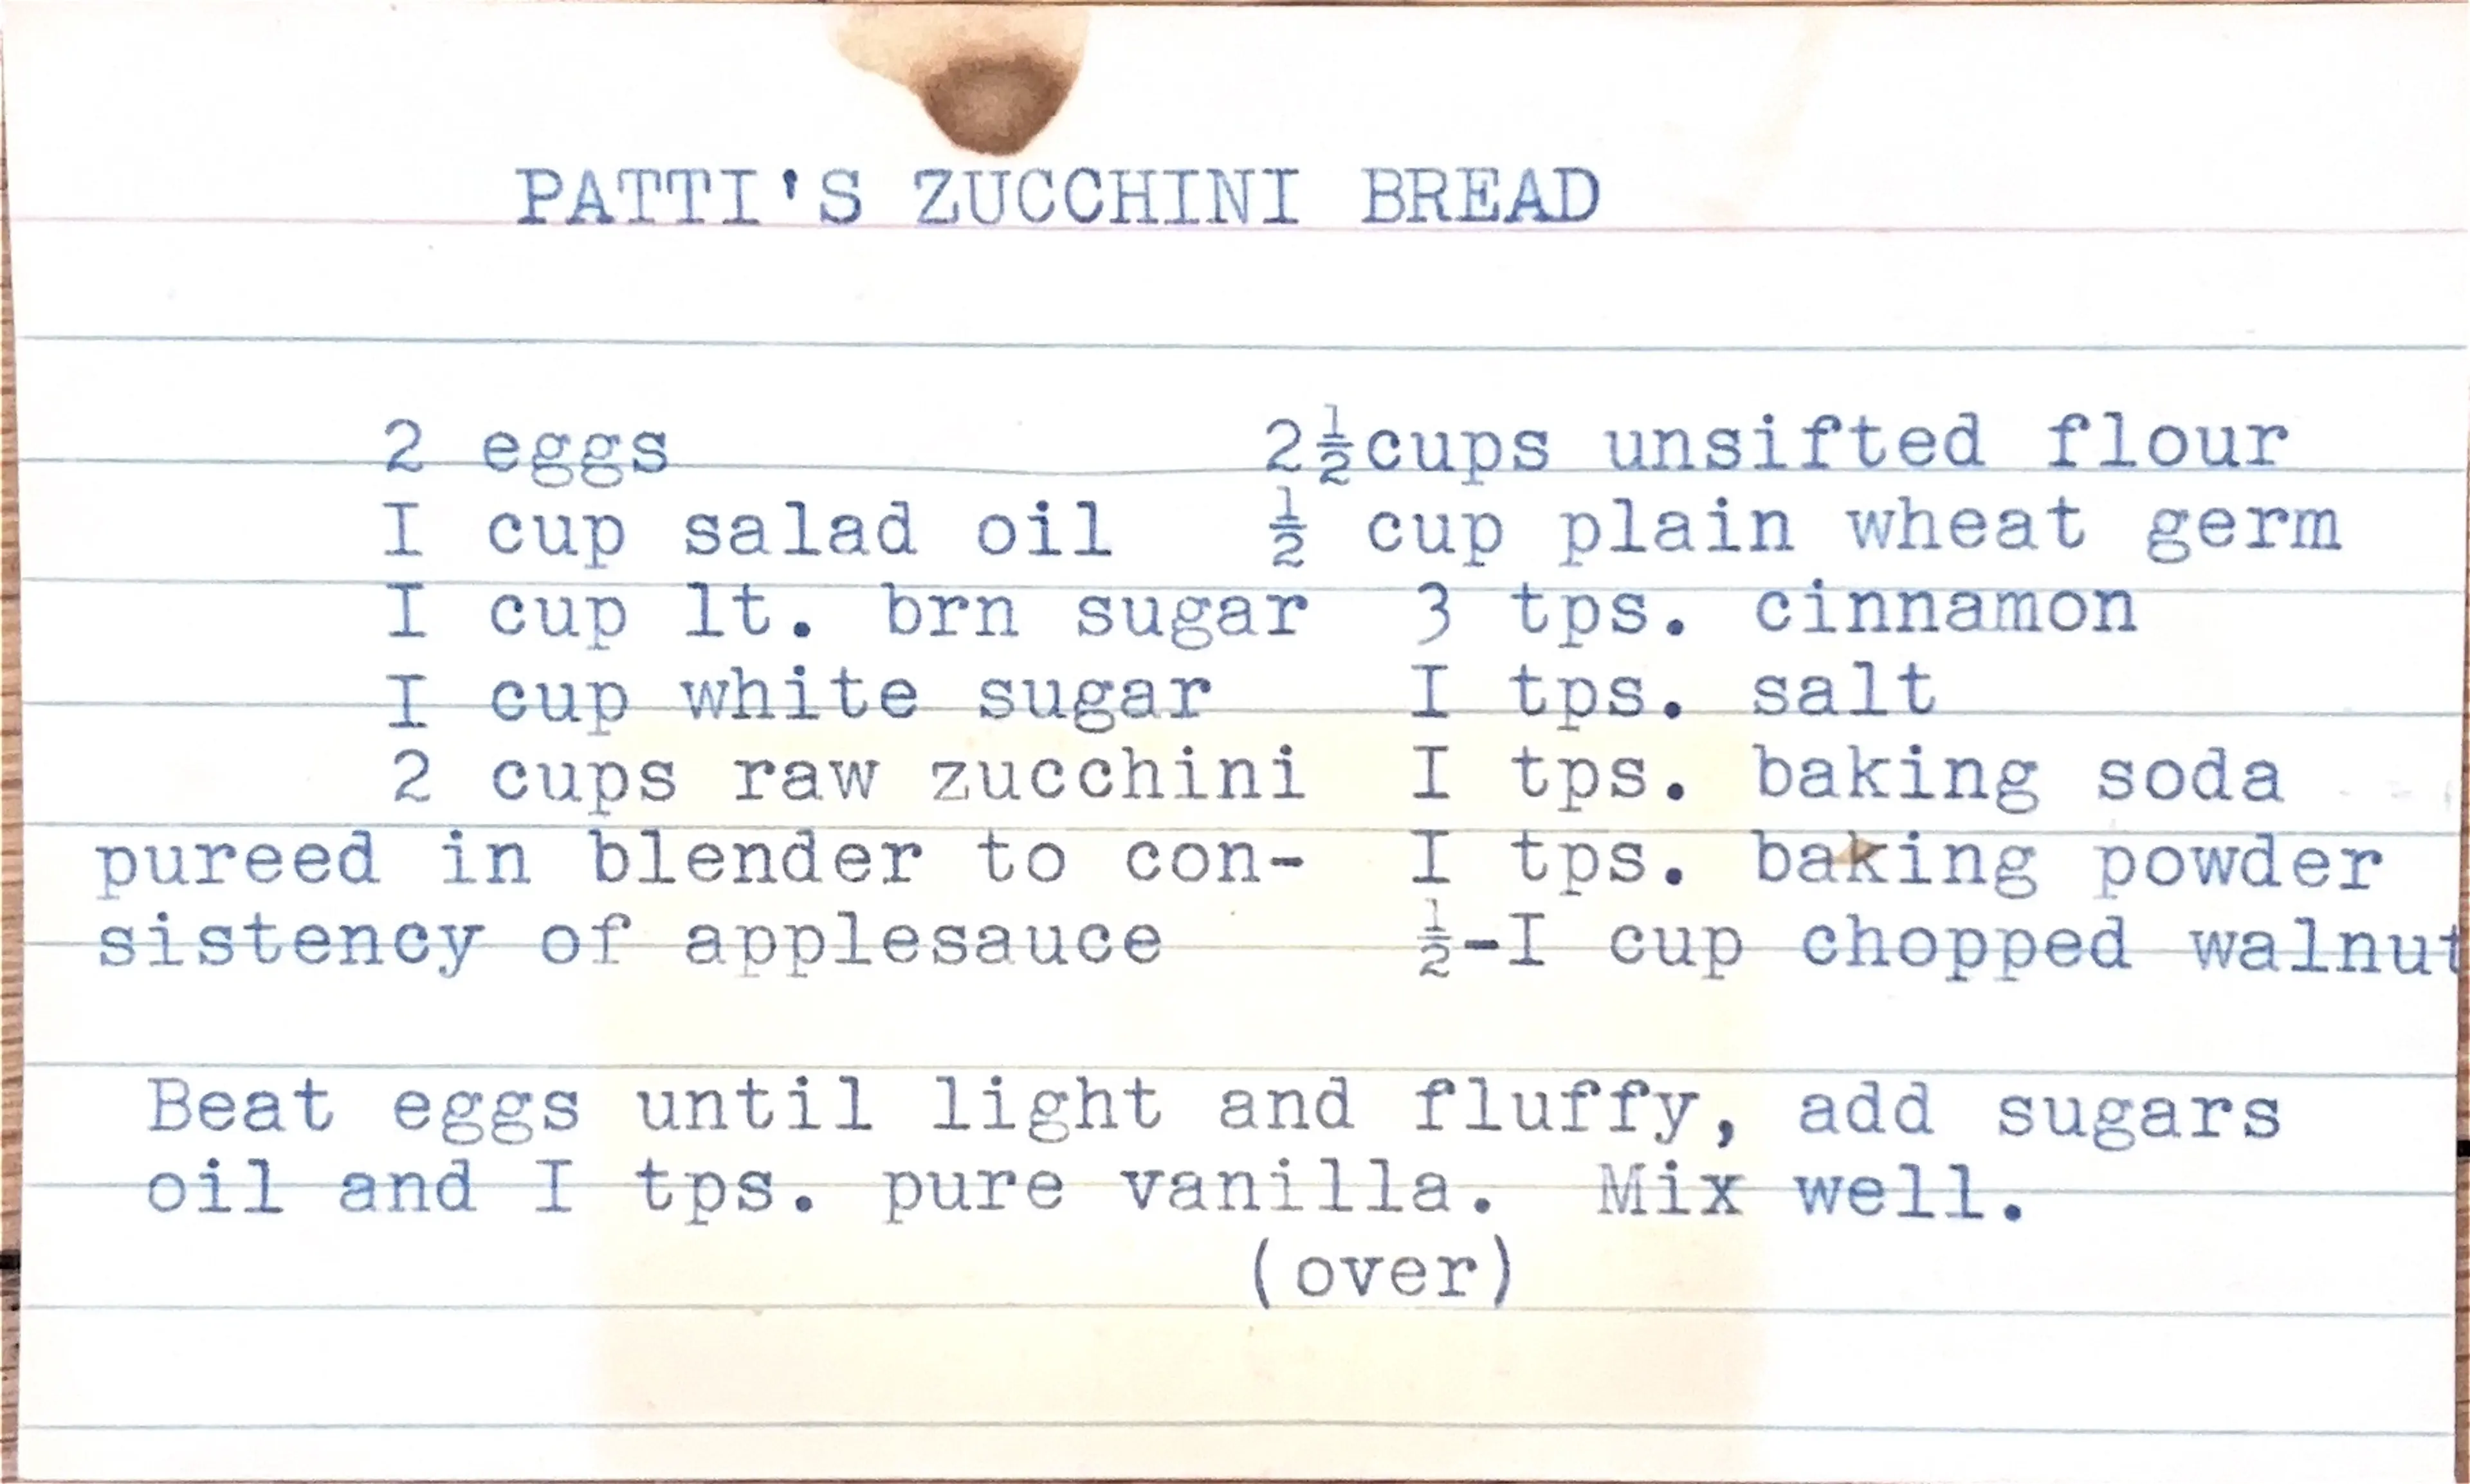 PATTI'S ZUCCHINI BREAD
2 eggs 2½cups unsifted flour
I cup salad oil ½ cup plain wheat germ
I cup lt. brn sugar 3 tps. cinnamon
I cup white sugar I tps. salt
2 cups raw zucchini I tps. baking soda
pureed in blender to con- I tps. baking powder
sistency of applesauce ½-I cup chopped walnut
Beat eggs until light and fluffy, add sugars
oil and I tps. pure vanilla. Mix well.
(over)